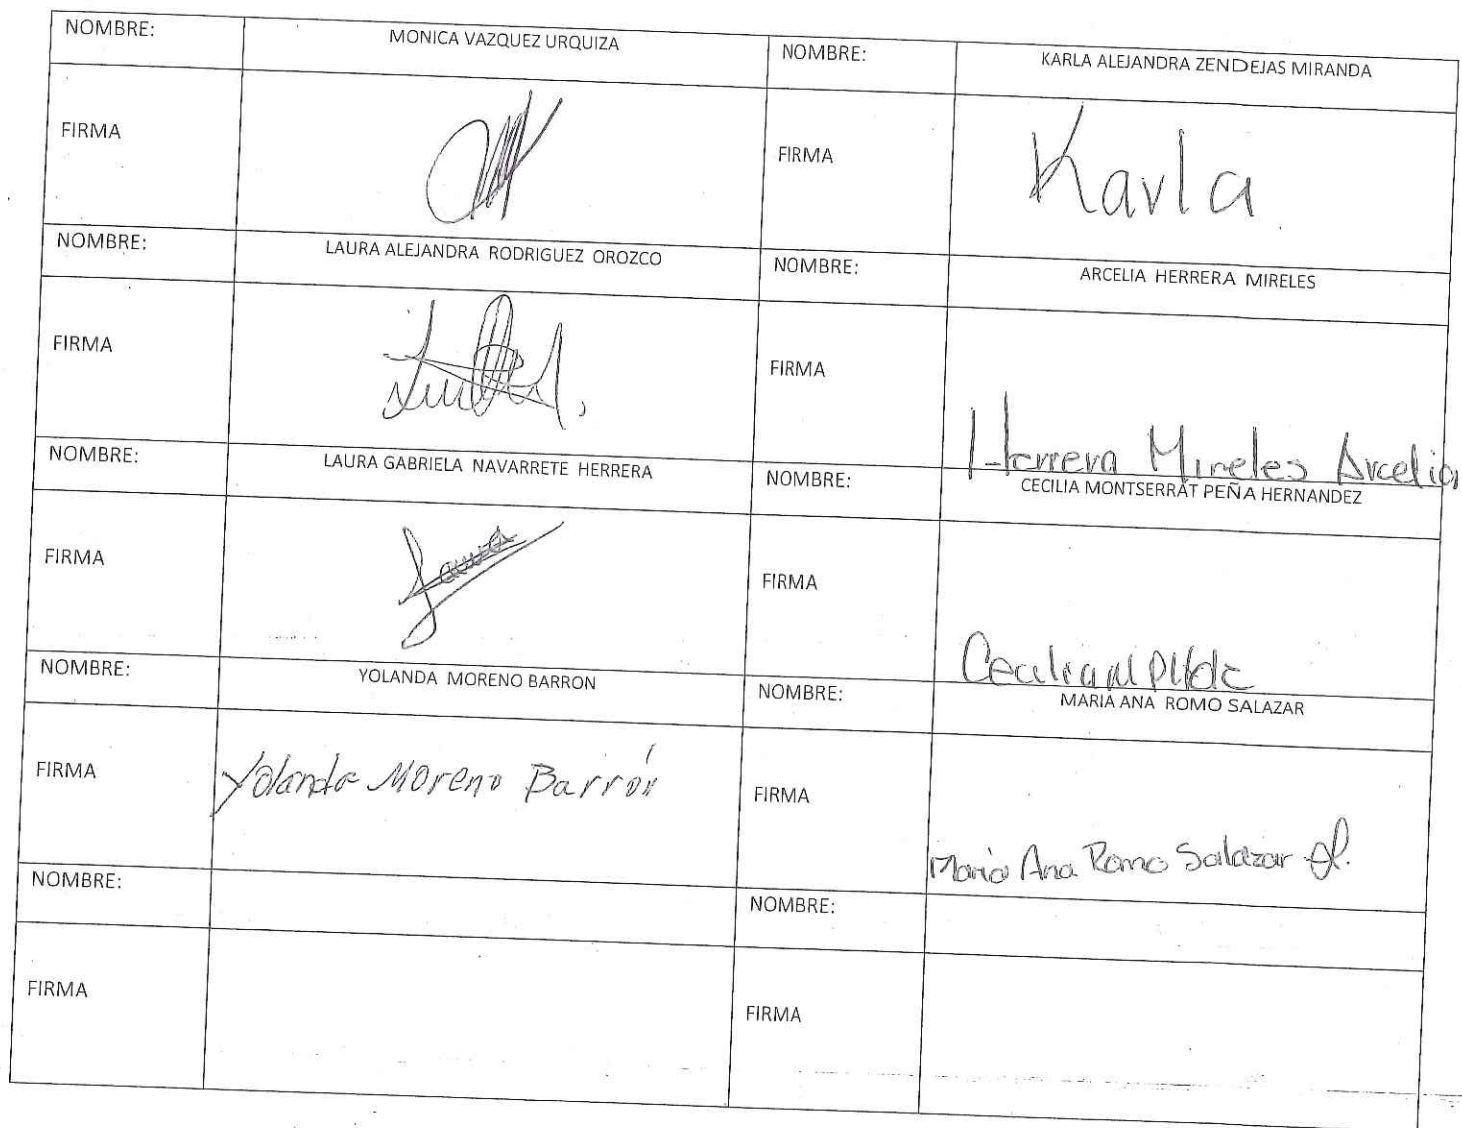 NOMBRE: MONICA VAZQUEZ URQUIZA NOMBRE: KARLA ALEJANDRA ZENDEJAS MIRANDA
FIRMA FIRMA Karla
NOMBRE: LAURA ALEJANDRA RODRIGUEZ OROZCO NOMBRE: ARCELIA HERRERA MIRELES
FIRMA FIRMA Herrera Mireles Arcelia
NOMBRE: LAURA GABRIELA NAVARRETE HERRERA NOMBRE: CECILIA MONTSERRAT PEÑA HERNANDEZ
FIRMA Laura FIRMA
NOMBRE: YOLANDA MORENO BARRON NOMBRE: MARIA ANA ROMO SALAZAR
FIRMA Yolanda Moreno Barrón FIRMA Maria Ana Romo Salazar
NOMBRE: NOMBRE:
FIRMA FIRMA